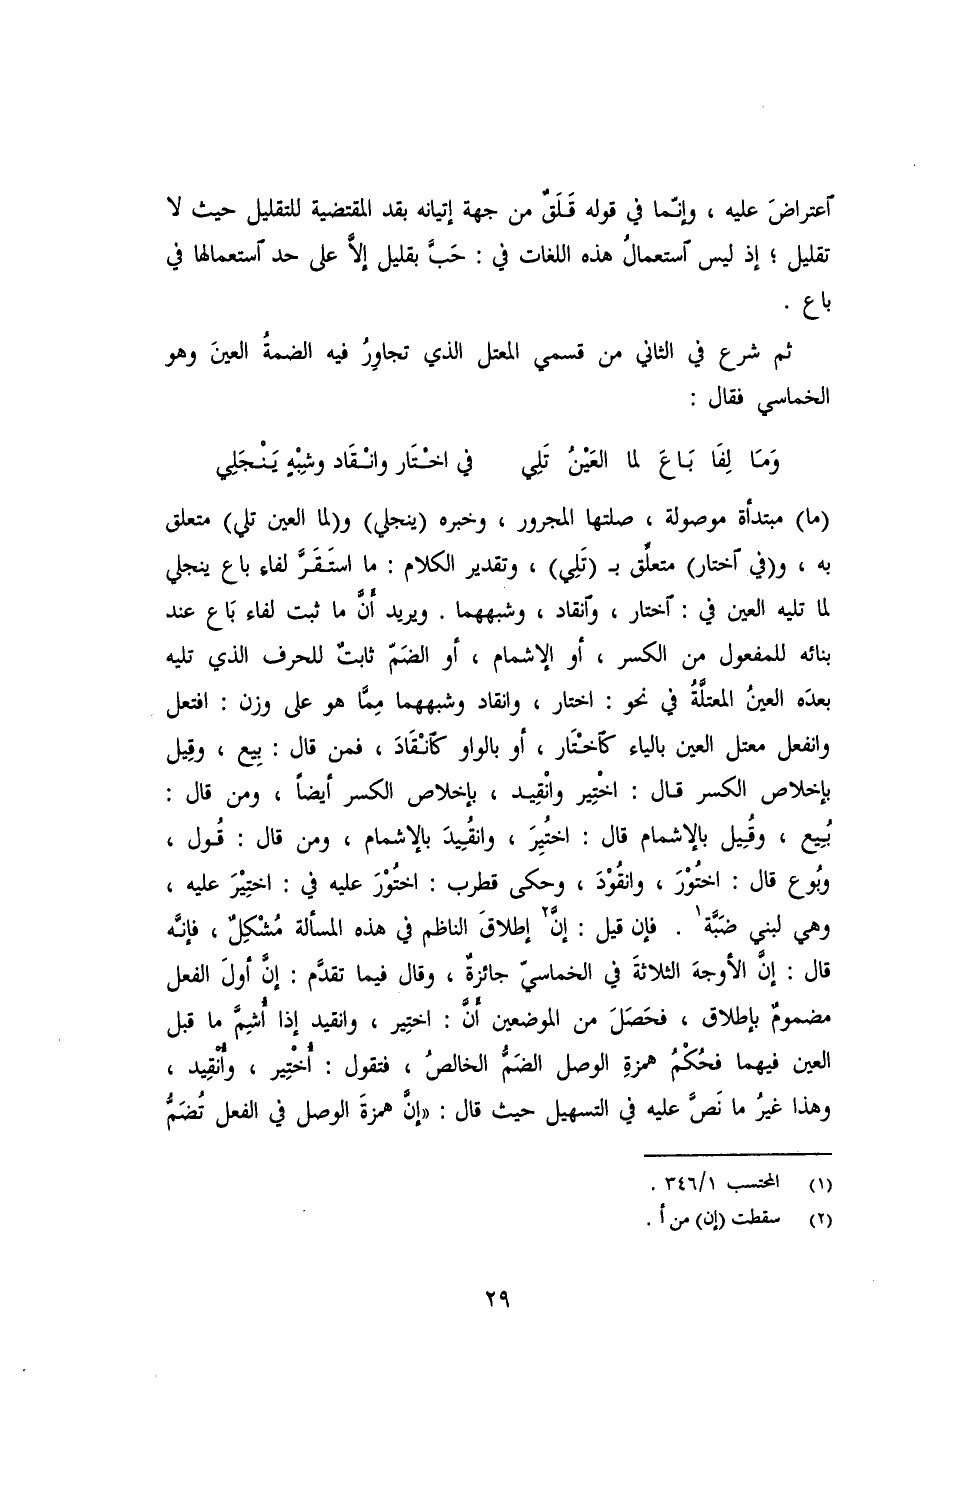 ٱعتراضَ عليه ، وإنّما في قوله قَلَقٌ من جهة إتيانه بقد المقتضية للتقليل حيث لا
تقليل ؛ إذ ليس ٱستعمالُ هذه اللغات في : حَبَّ بقليل إلاَّ على حد ٱستعمالها في
باع .
ثم شرع في الثاني من قسمي المعتل الذي تجاوِرُ فيه الضمةُ العينَ وهو
الخماسي فقال :
وَمَا لِفَا بَاعَ لما العَيْنُ تَلِي في اخْتَار وانْقَاد وشِبْهٍ يَنْجَلِي
(ما) مبتدأة موصولة ، صلتها المجرور ، وخبره (ينجلي) و(لما العين تلي) متعلق
به ، و(في ٱختار) متعلِّق بـ (تَلِي) ، وتقدير الكلام : ما استَقَرَّ لفاء باع ينجلي
لما تليه العين في : ٱختار ، وٱنقاد ، وشبههما . ويريد أَنَّ ما ثبت لفاء بَاع عند
بنائه للمفعول من الكسر ، أو الإشمام ، أو الضَمّ ثابتٌ للحرف الذي تليه
بعدَه العينُ المعتلَّةُ في نحو : اختار ، وانقاد وشبههما مِمَّا هو على وزن : افتعل
وانفعل معتل العين بالياء كَٱخْتَار ، أو بالواو كَٱنْقَادَ ، فمن قال : بِيع ، وقِيل
بإخلاص الكسر قال : اخْتِير وانْقِيد ، بإخلاص الكسر أيضاً ، ومن قال :
بُيِع ، وقُيِل بالإشمام قال : اختُيِرَ ، وانقُيِدَ بالإشمام ، ومن قال : قُول ،
وبُوع قال : اختُوْرَ ، وانقُوْدَ ، وحكى قطرب : اختُوْرَ عليه في : اختِيْرَ عليه ،
وهي لبني ضَبَّة١ . فإن قيل : إنَّ٢ إطلاقَ الناظم في هذه المسألة مُشْكِلٌ ، فإنه
قال : إنَّ الأوجهَ الثلاثةَ في الخماسيّ جائزةٌ ، وقال فيما تقدَّم : إنَّ أولَ الفعل
مضمومٌ بإطلاق ، فحَصَلَ من الموضعين أَنَّ : اختِير ، وانقيد إذا أُشِمَّ ما قبل
العين فيهما فحُكْمُ همزةِ الوصل الضَمُّ الخالصُ ، فتقول : أُخْتِير ، وأُنْقِيد ،
وهذا غيرُ ما نَصَّ عليه في التسهيل حيث قال : «إنَّ همزةَ الوصل في الفعل تُضَمُّ
(١) المحتسب ٣٤٦/١ .
(٢) سقطت (إن) من أ .
٢٩